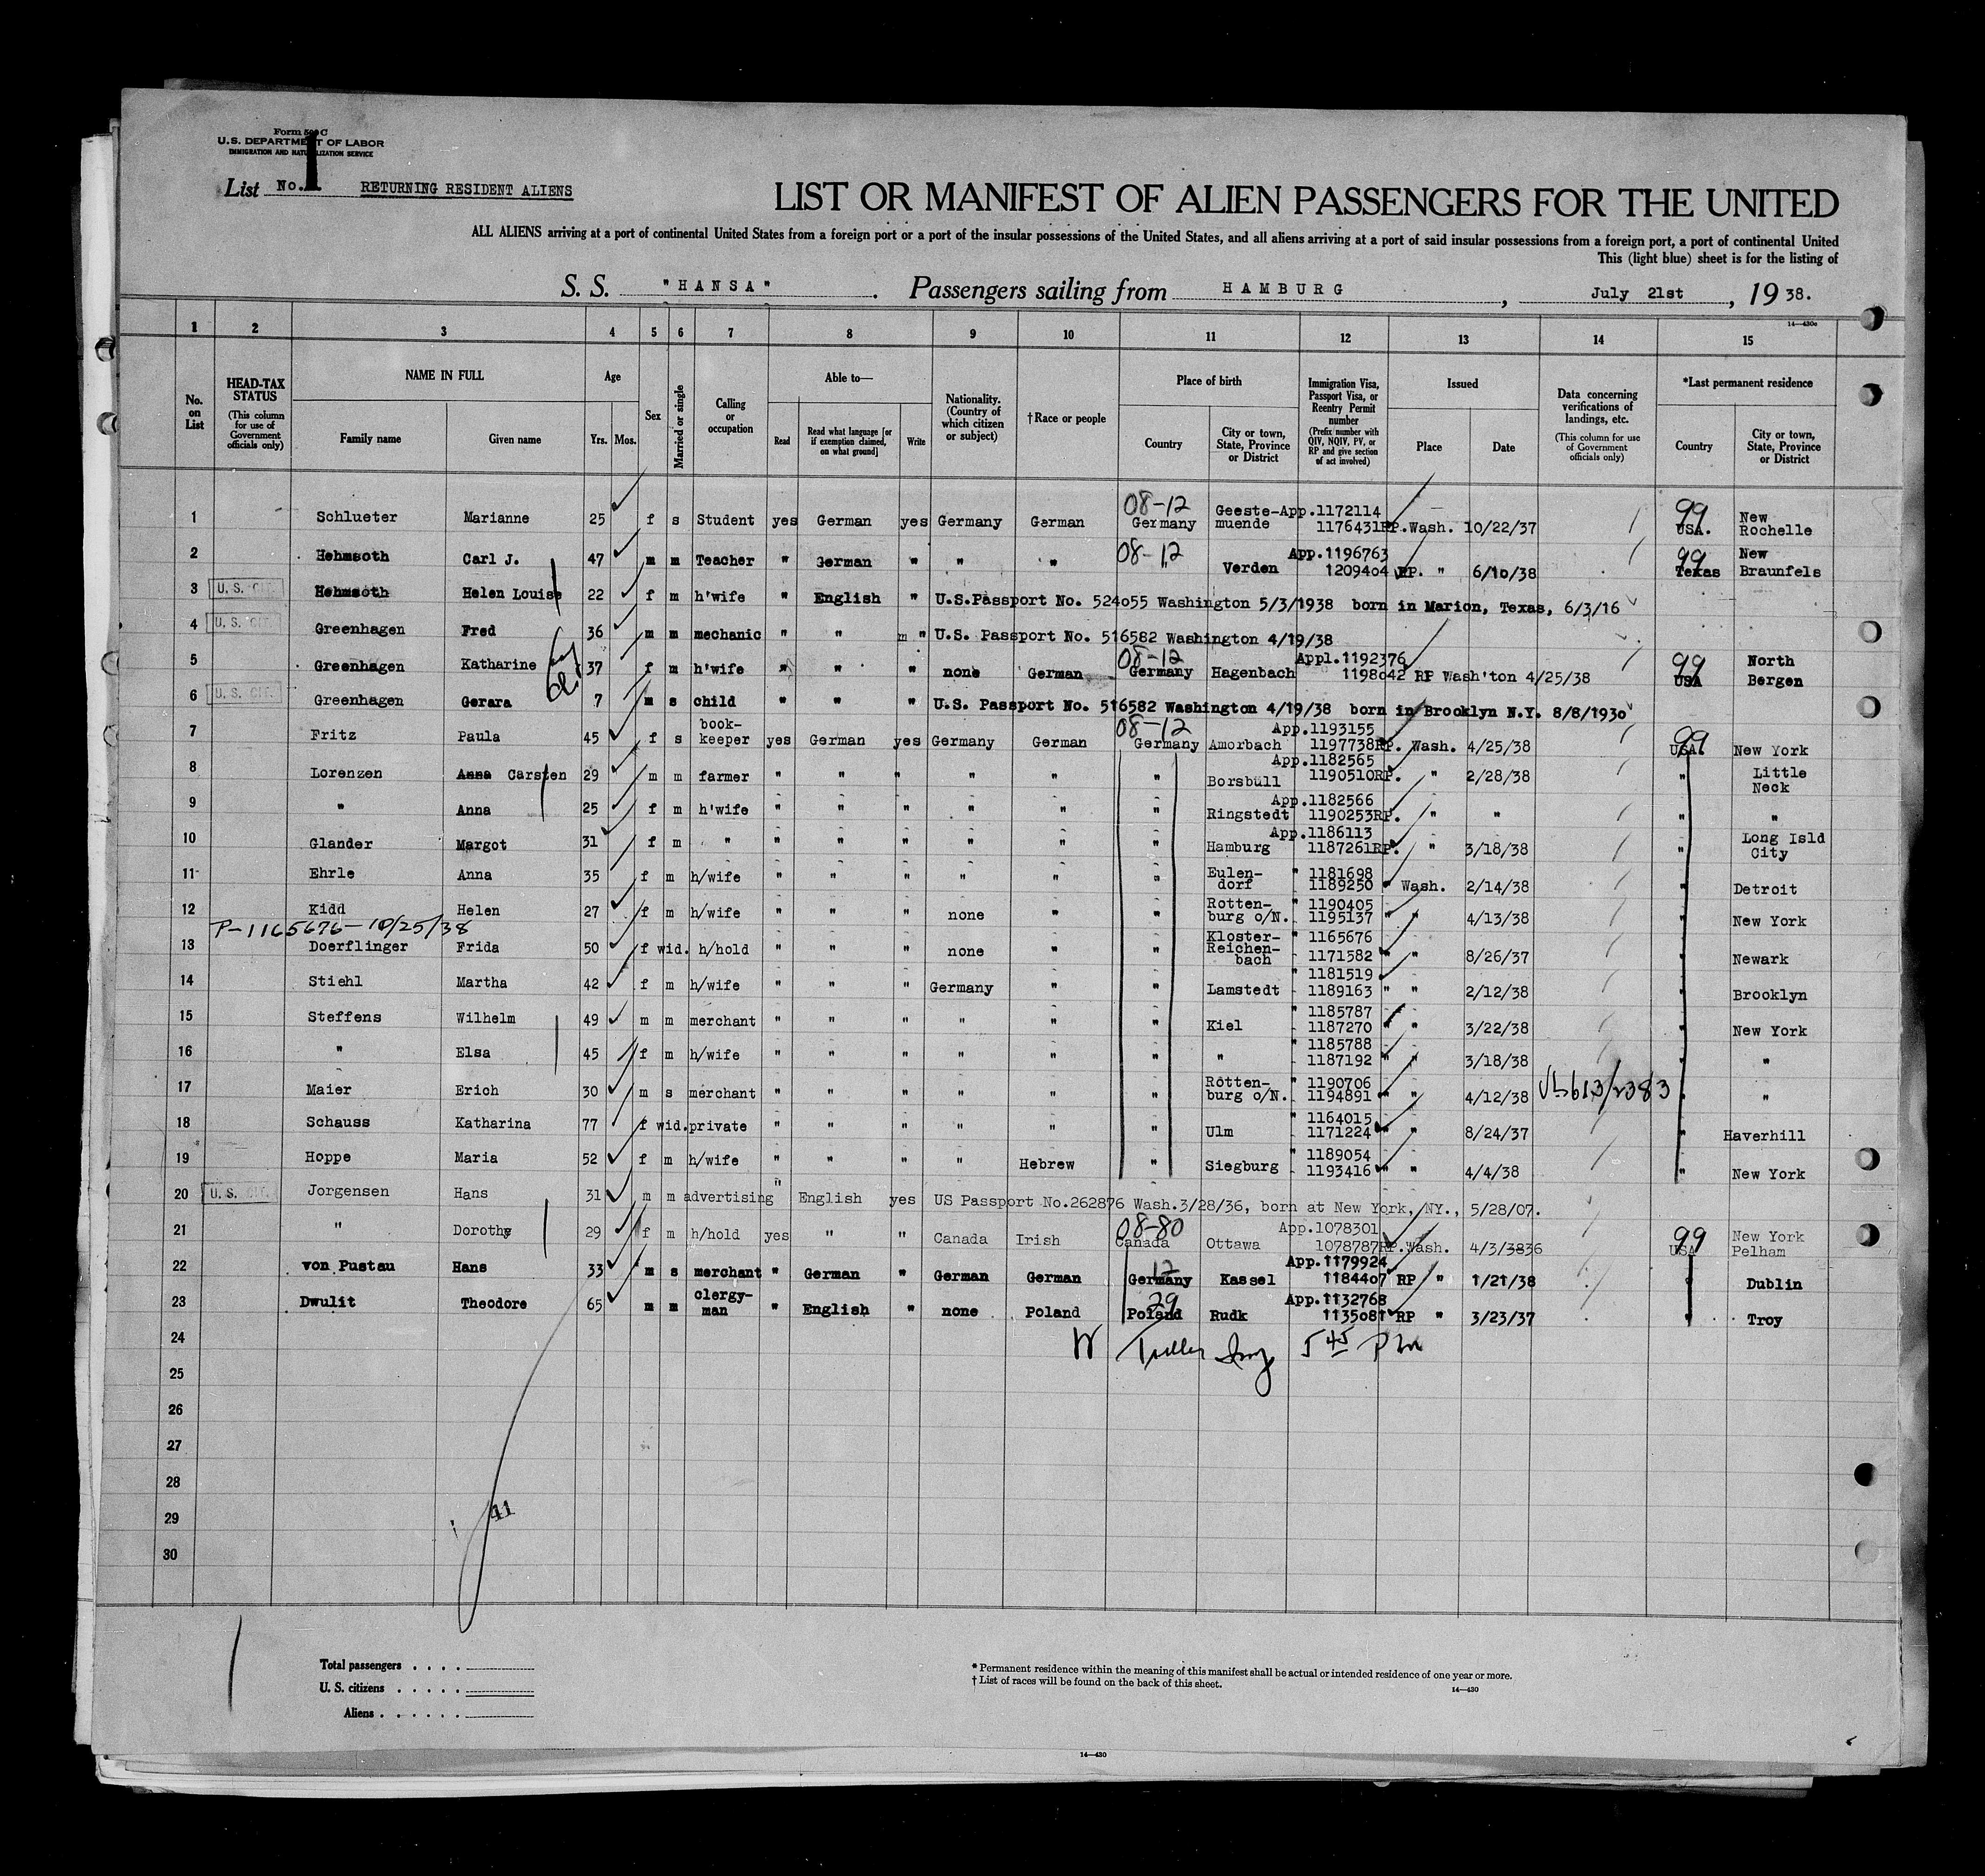 Form 500 C
U.S. DEPARTMENT OF LABOR
IMMIGRATION AND NATURALIZATION SERVICE
List No. 1 RETURNING RESIDENT ALIENS
LIST OR MANIFEST OF ALIEN PASSENGERS FOR THE UNITED
ALL ALIENS arriving at a port of continental United States from a foreign port or a port of the insular possessions of the United States, and all aliens arriving at a port of said insular possessions from a foreign port, a port of continental United
This (light blue) sheet is for the listing of
S. S. "HANSA". Passengers sailing from HAMBURG, July 21st, 1938.
14—430c
1 2 3 4 5 6 7 8 9 10 11 12 13 14 15
No. on List
HEAD-TAX STATUS (This column for use of Government officials only)
NAME IN FULL Family name Given name
Age Yrs. Mos.
Sex
Married or single
Calling or occupation
Able to— Read Read what language [or if exemption claimed, on what ground] Write
Nationality. (Country of which citizen or subject)
†Race or people
Place of birth Country City or town, State, Province or District
Immigration Visa, Passport Visa, or Reentry Permit number (Prefix number with QIV, NQIV, PV, or RP and give section of act involved)
Issued Place Date
Data concerning verifications of landings, etc. (This column for use of Government officials only)
*Last permanent residence Country City or town, State, Province or District
1 Schlueter Marianne 25 f s Student yes German yes Germany German 08-12 Germany Geeste-muende App.1172114 1176431RP.Wash. 10/22/37 99 USA. New Rochelle
2 Hehmsoth Carl J. 47 m m Teacher " German " " " 08-12 " Verden App.1196763 1209404 RP. " 6/10/38 99 Texas New Braunfels
3 U. S. CIT. Hehmsoth Helen Louise 22 f m h'wife " English " U.S.Passport No. 524055 Washington 5/3/1938 born in Marion, Texas, 6/3/16
4 U. S. CIT. Greenhagen Fred 36 m m mechanic " " m " U.S. Passport No. 516582 Washington 4/19/38
5 Greenhagen Katharine 37 f m h'wife " " " none German 08-12 Germany Hagenbach Appl.1192376 1198042 RP Wash'ton 4/25/38 99 USA North Bergen
6 U. S. CIT. Greenhagen Gerara 7 m s child " " " U.S. Passport No. 516582 Washington 4/19/38 born in Brooklyn N.Y. 8/8/1930
7 Fritz Paula 45 f s book-keeper yes German yes Germany German 08-12 Germany Amorbach App.1193155 1197738RP. Wash. 4/25/38 99 USA New York
8 Lorenzen Anna Carsten 29 m m farmer " " " " " " Borsbüll App.1182565 1190510RP. " 2/28/38 " Little Neck
9 " Anna 25 f m h'wife " " " " " " Ringstedt App.1182566 1190253RP. " " " "
10 Glander Margot 31 f m " " " " " " " Hamburg App.1186113 1187261RP. " 3/18/38 " Long Isld City
11 Ehrle Anna 35 f m h/wife " " " " " " Eulen-dorf " 1181698 1189250 " Wash. 2/14/38 " Detroit
12 Kidd Helen 27 f m h/wife " " " none " " Rotten-burg o/N. " 1190405 1195137 " " 4/13/38 " New York
P-1165676-10/25/38
13 Doerflinger Frida 50 f wid. h/hold " " " none " " Kloster-Reichen-bach " 1165676 1171582 " " 8/26/37 " Newark
14 Stiehl Martha 42 f m h/wife " " " Germany " " Lamstedt " 1181519 1189163 " " 2/12/38 " Brooklyn
15 Steffens Wilhelm 49 m m merchant " " " " " " Kiel " 1185787 1187270 " " 3/22/38 " New York
16 " Elsa 45 f m h/wife " " " " " " " " 1185788 1187192 " " 3/18/38 " "
17 Maier Erich 30 m s merchant " " " " " " Rotten-burg o/N. " 1190706 1194891 " " 4/12/38 " "
18 Schauss Katharina 77 f wid. private " " " " " " Ulm " 1164015 1171224 " " 8/24/37 " Haverhill
19 Hoppe Maria 52 f m h/wife " " " " Hebrew " Siegburg " 1189054 1193416 " " 4/4/38 " New York
20 U. S. CIT. Jorgensen Hans 31 m m advertising " English yes US Passport No.262876 Wash.3/28/36, born at New York, NY., 5/28/07.
21 " Dorothy 29 f m h/hold yes " " Canada Irish 08-80 Canada Ottawa App.1078301 1078787RP.Wash. 4/3/3836 99 USA New York Pelham
22 von Pustau Hans 33 m s merchant " German " German German 12 Germany Kassel App.1179924 1184407 RP " 1/21/38 " Dublin
23 Dwulit Theodore 65 m m clergy-man " English " none Poland 29 Poland Rudk App.1132768 1135081 RP " 3/23/37 " Troy
24 5 45 Pm
25
26
27
28
29 41
30
Total passengers . . . .
U. S. citizens . . . . .
Aliens . . . . . .
* Permanent residence within the meaning of this manifest shall be actual or intended residence of one year or more.
† List of races will be found on the back of this sheet.
14—430
14—430